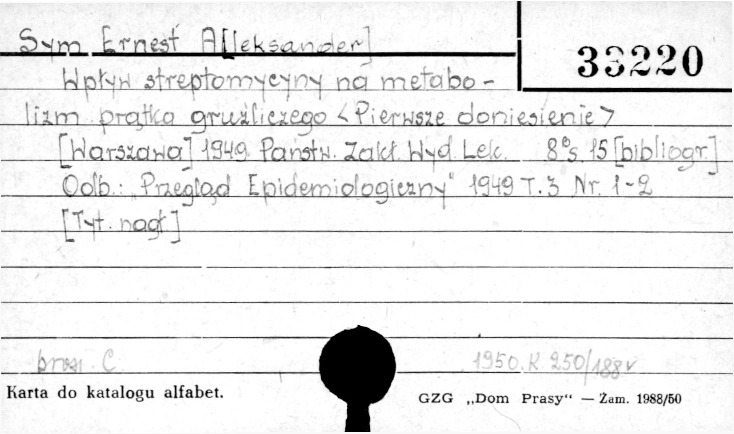 Sym Ernest A[leksander]
33220
Wpływ streptomycyny na metabo-
lizm prątka gruźliczego <Pierwsze doniesienie>
[Warszawa] 1949. Państw. Zakł. Wyd. Lek. 8° s. 15 [bibliogr.]
Odb.: "Przegląd Epidemiologiczny" 1949 T. 3 Nr. 1-2
[Tyt. nagł.]
1950. K 250/188
Karta do katalogu alfabet.
GZG „Dom Prasy“ — Zam. 1988/50